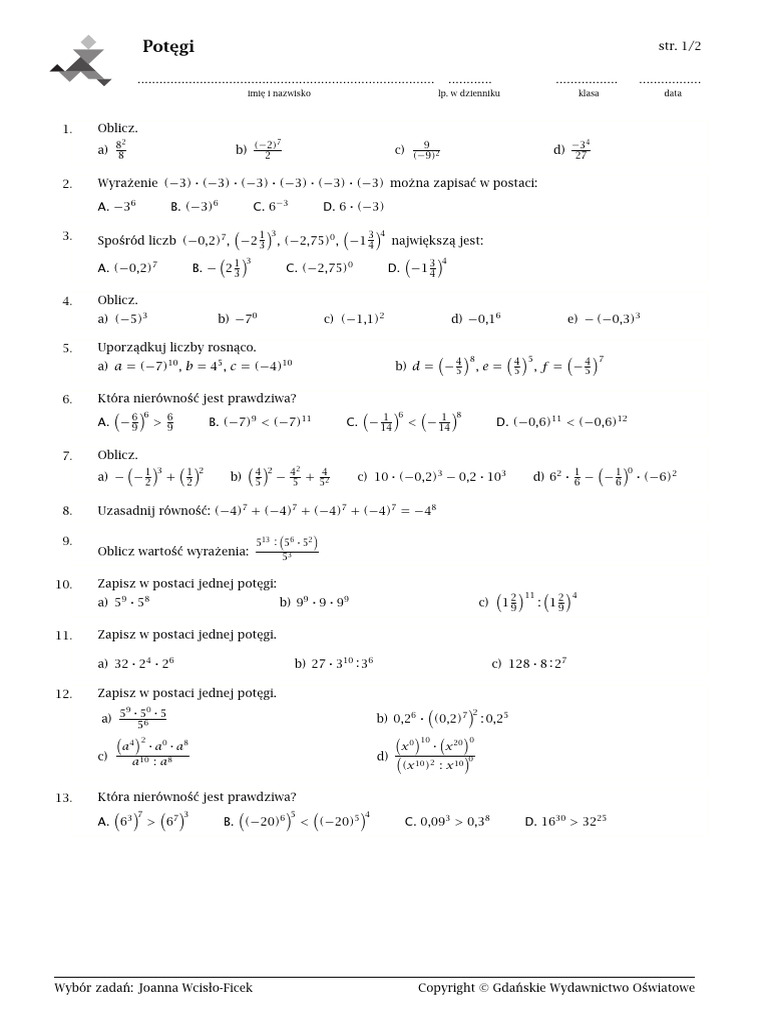 Potęgi
str. 1/2
imię i nazwisko lp. w dzienniku klasa data
1. Oblicz.
a) 8²/8 b) (−2)⁷/2 c) 9/(−9)² d) −3⁴/27
2. Wyrażenie (−3) · (−3) · (−3) · (−3) · (−3) · (−3) można zapisać w postaci:
A. −3⁶ B. (−3)⁶ C. 6⁻³ D. 6 · (−3)
3. Spośród liczb (−0,2)⁷, (−2 1/3)³, (−2,75)⁰, (−1 3/4)⁴ największą jest:
A. (−0,2)⁷ B. −(2 1/3)³ C. (−2,75)⁰ D. (−1 3/4)⁴
4. Oblicz.
a) (−5)³ b) −7⁰ c) (−1,1)² d) −0,1⁶ e) −(−0,3)³
5. Uporządkuj liczby rosnąco.
a) a = (−7)¹⁰, b = 4⁵, c = (−4)¹⁰ b) d = (−4/5)⁸, e = (4/5)⁵, f = (−4/5)⁷
6. Która nierówność jest prawdziwa?
A. (−6/9)⁶ > 6/9 B. (−7)⁹ < (−7)¹¹ C. (−1/14)⁶ < (−1/14)⁸ D. (−0,6)¹¹ < (−0,6)¹²
7. Oblicz.
a) −(−1/2)³ + (1/2)² b) (4/5)² − 4²/5 + 4/5² c) 10 · (−0,2)³ − 0,2 · 10³ d) 6² · 1/6 − (−1/6)⁰ · (−6)²
8. Uzasadnij równość: (−4)⁷ + (−4)⁷ + (−4)⁷ + (−4)⁷ = −4⁸
9. Oblicz wartość wyrażenia: 5¹³ : (5⁶ · 5²)/5³
10. Zapisz w postaci jednej potęgi:
a) 5⁹ · 5⁸ b) 9⁹ · 9 · 9⁹ c) (1 2/9)¹¹ : (1 2/9)⁴
11. Zapisz w postaci jednej potęgi.
a) 32 · 2⁴ · 2⁶ b) 27 · 3¹⁰ : 3⁶ c) 128 · 8 : 2⁷
12. Zapisz w postaci jednej potęgi.
a) 5⁹ · 5⁰ · 5/5⁶ b) 0,2⁶ · ((0,2)⁷)² : 0,2⁵
c) (a⁴)² · a⁰ · a⁸/a¹⁰ : a⁸ d) (x⁰)¹⁰ · (x²⁰)⁰/((x¹⁰)² : x¹⁰)⁰
13. Która nierówność jest prawdziwa?
A. (6³)⁷ > (6⁷)³ B. ((−20)⁶)⁵ < ((−20)⁵)⁴ C. 0,09³ > 0,3⁸ D. 16³⁰ > 32²⁵
Wybór zadań: Joanna Wcisło-Ficek Copyright © Gdańskie Wydawnictwo Oświatowe